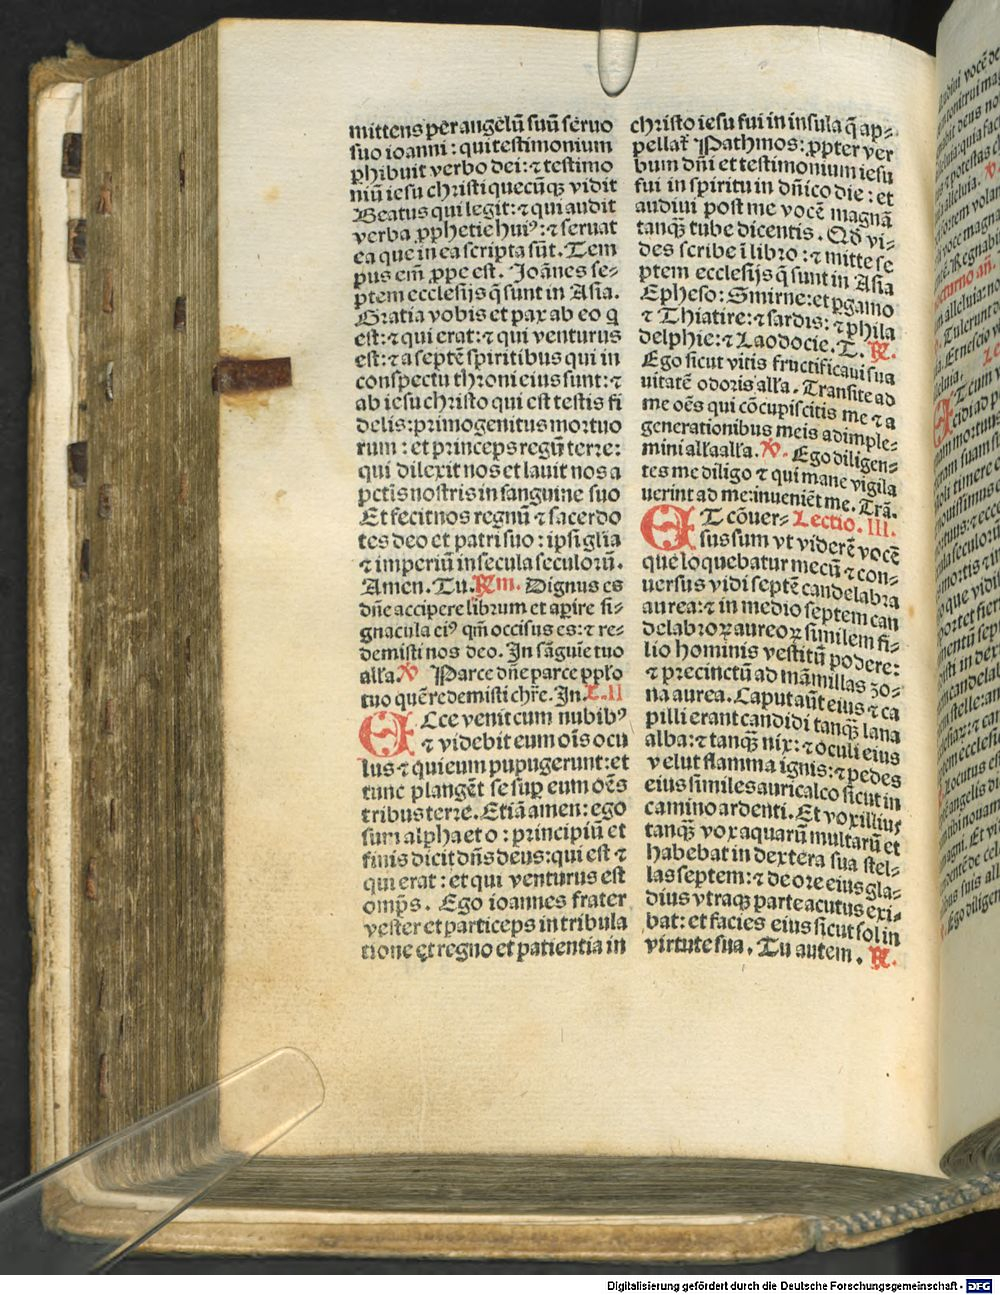 mittens per angelū suū seruo
suo ioanni : qui testimonium
ꝓhibuit verbo dei: ⁊ testimo
niū iesu christi quecūqꝫ vidit
Beatus qui legit: ⁊ qui audit
verba ꝓphetie huiꝰ: ⁊ seruat
ea que in ea scripta sūt. Tem
pus em̄ ꝓpe est. Joānes se-
ptem ecclesijs q̄ sunt in Asia.
Gratia vobis et pax ab eo q
est: ⁊ qui erat: ⁊ qui venturus
est: ⁊ a septē spiritibus qui in
conspectu throni eius sunt: ⁊
ab iesu christo qui est testis fi
delis: primogenitus mortuo
rum : et princeps regū terre:
qui dilexit nos et lauit nos a
pctīs nostris in sanguine suo
Et fecit nos regnū ⁊ sacerdo
tes deo et patri suo : ipsi glīa
⁊ imperiū in secula seculorū.
Amen. Tu. Rm. Dignus es
dn̄e accipere librum et aꝑire si-
gnacula eiꝰ qm̄ occisus es: ⁊ re-
demisti nos deo. In sāguīe tuo
alľa. V Parce dn̄e parce pplo
tuo quē redemisti chr̄e. In. L. II
ECce venit cum nubibꝰ
⁊ videbit eum oīs ocu
lus ⁊ qui eum pupugerunt: et
tunc plangēt se suꝑ eum oēs
tribus terre. Etiā amen: ego
sum alpha et o : principiū et
finis dicit dn̄s deus: qui est ⁊
qui erat : et qui venturus est
omp̄s. Ego ioannes frater
vester et particeps in tribula
tione et regno et patientia in
christo iesu fui in insula q̄ ap-
pellať Pathmos: ꝓpter ver
bum dn̄i et testimonium iesu
fui in spiritu in dn̄ico die : et
audiui post me vocē magnā
tanqꝫ tube dicentis. Qd̄ vi-
des scribe ī libro : ⁊ mitte se
ptem ecclesijs q̄ sunt in Asia
Epheso: Smirne: et ꝑgamo
⁊ Thiatire: ⁊ sardis: ⁊ phila
delphie: ⁊ Laodocie. T. R.
Ego sicut vitis fructificaui sua
uitatē odoris alľa. Transite ad
me oēs qui cōcupiscitis me ⁊ a
generationibus meis adimple-
mini alľa alľa. V. Ego diligen-
tes me diligo ⁊ qui mane vigila
uerint ad me: inueniēt me. Trā.
ET cōuer- Lectio. III.
sus sum vt viderē vocē
que loquebatur mecū ⁊ con-
uersus vidi septē candelabra
aurea: ⁊ in medio septem can
delabroꝝ aureoꝝ similem fi-
lio hominis vestitū podere:
⁊ precinctū ad māmillas zo-
na aurea. Caput aūt eius ⁊ ca
pilli erant candidi tanqꝫ lana
alba: ⁊ tanqꝫ nix: ⁊ oculi eius
velut flamma ignis: ⁊ pedes
eius similes auricalco sicut in
camino ardenti. Et vox illius
tanqꝫ vox aquarū multarū et
habebat in dextera sua stel-
las septem: ⁊ de ore eius gla-
dius vtraqꝫ parte acutus exi-
bat: et facies eius sicut sol in
virtute sua. Tu autem. R.
Digitalisierung gefördert durch die Deutsche Forschungsgemeinschaft - DFG